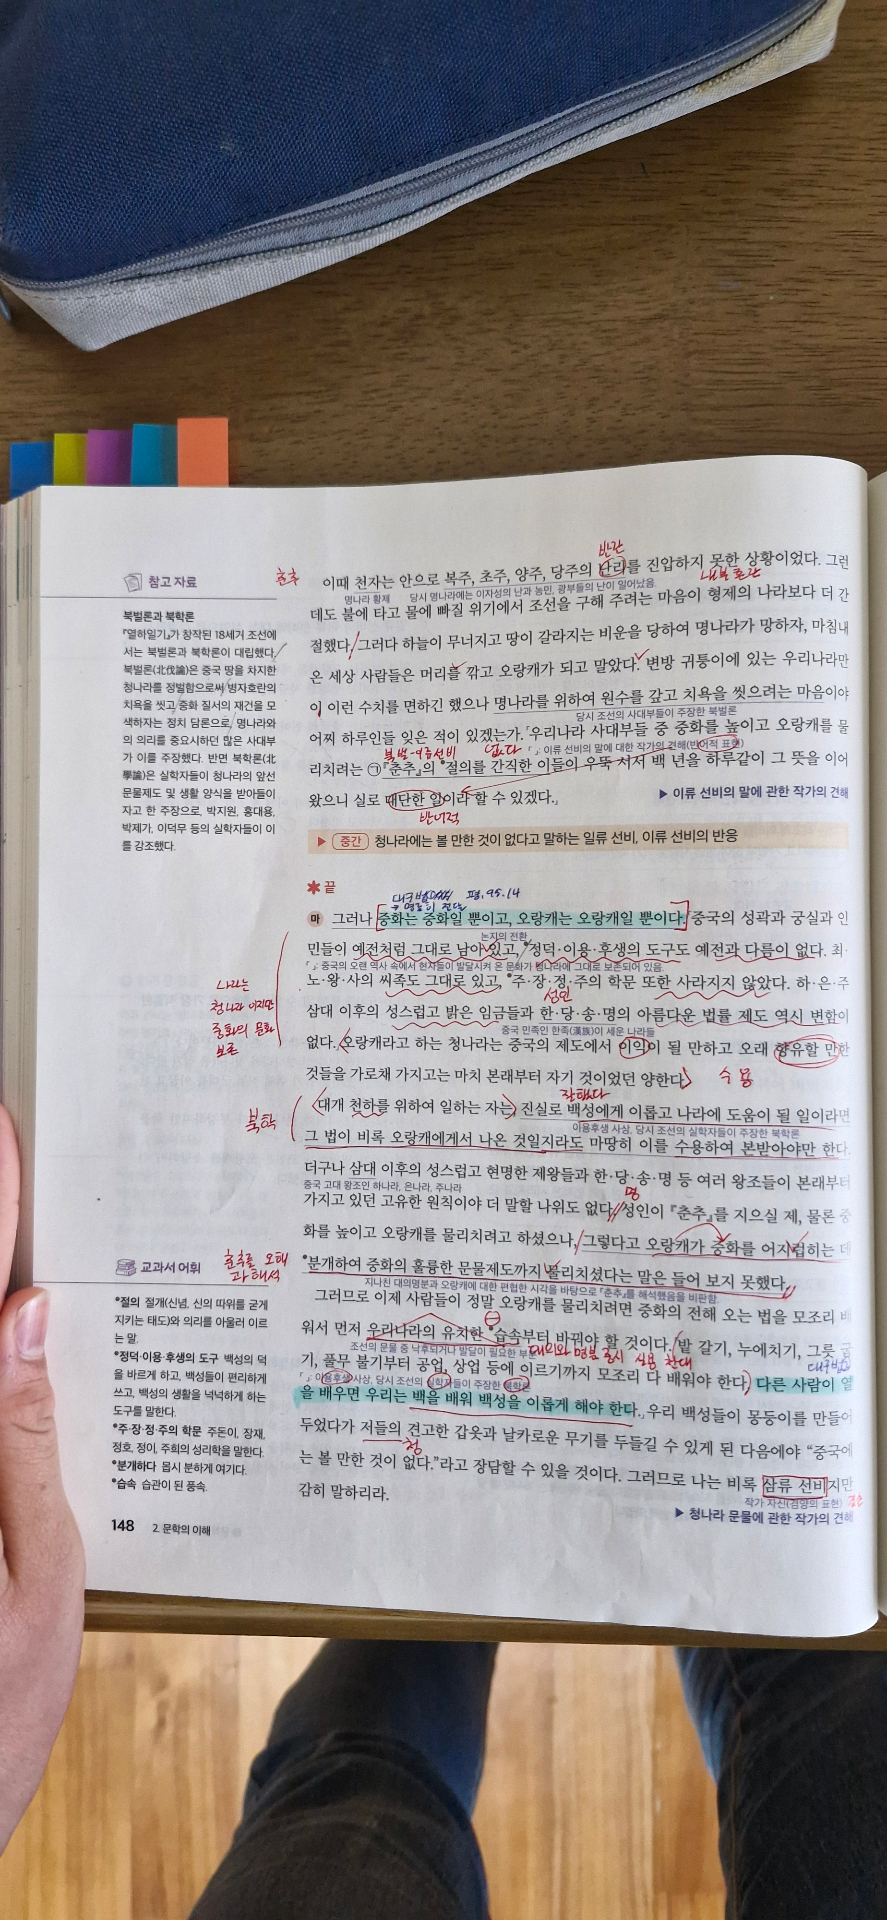 참고 자료
북벌론과 북학론
『열하일기』가 창작된 18세기 조선에
서는 북벌론과 북학론이 대립했다.
북벌론(北伐論)은 중국 땅을 차지한
청나라를 정벌함으로써 병자호란의
치욕을 씻고 중화 질서의 재건을 모
색하자는 정치 담론으로, 명나라와
의 의리를 중요시하던 많은 사대부
가 이를 주장했다. 반면 북학론(北
學論)은 실학자들이 청나라의 앞선
문물제도 및 생활 양식을 받아들이
자고 한 주장으로, 박지원, 홍대용,
박제가, 이덕무 등의 실학자들이 이
를 강조했다.
춘추
반란
이때 천자는 안으로 복주, 초주, 양주, 당주의 난리를 진압하지 못한 상황이었다. 그런
명나라 황제 당시 명나라에는 이자성의 난과 농민, 광부들의 난이 일어났음.
데도 불에 타고 물에 빠질 위기에서 조선을 구해 주려는 마음이 형제의 나라보다 더 간
절했다. 그러다 하늘이 무너지고 땅이 갈라지는 비운을 당하여 명나라가 망하자, 마침내
온 세상 사람들은 머리를 깎고 오랑캐가 되고 말았다. 변방 귀퉁이에 있는 우리나라만
이 이런 수치를 면하긴 했으나 명나라를 위하여 원수를 갚고 치욕을 씻으려는 마음이야
당시 조선의 사대부들이 주장한 북벌론
어찌 하루인들 잊은 적이 있겠는가.『우리나라 사대부들 중 중화를 높이고 오랑캐를 물
북벌-이류선비 없다 『 』: 이류 선비의 말에 대한 작가의 견해(반어적 표현)
리치려는 ㉠『춘추』의 *절의를 간직한 이들이 우뚝 서서 백 년을 하루같이 그 뜻을 이어
왔으니 실로 대단한 일이라 할 수 있겠다.』
▶ 이류 선비의 말에 관한 작가의 견해
반어적
▶ 중간 청나라에는 볼 만한 것이 없다고 말하는 일류 선비, 이류 선비의 반응
끝
마 그러나 중화는 중화일 뿐이고, 오랑캐는 오랑캐일 뿐이다.『중국의 성곽과 궁실과 인
논지의 전환
민들이 예전처럼 그대로 남아 있고, *정덕·이용·후생의 도구도 예전과 다름이 없다. 최·
『 』: 중국의 오랜 역사 속에서 현자들이 발달시켜 온 문화가 청나라에 그대로 보존되어 있음.
노·왕·사의 씨족도 그대로 있고, *주·장·정·주의 학문 또한 사라지지 않았다. 하·은·주
성인
삼대 이후의 성스럽고 밝은 임금들과 한·당·송·명의 아름다운 법률 제도 역시 변함이
중국 민족인 한족(漢族)이 세운 나라들
없다. 오랑캐라고 하는 청나라는 중국의 제도에서 이익이 될 만하고 오래 향유할 만한
것들을 가로채 가지고는 마치 본래부터 자기 것이었던 양한다.』 수용
나라는
청나라 이지만
중화의 문화
보존
잘했다
대개 천하를 위하여 일하는 자는 진실로 백성에게 이롭고 나라에 도움이 될 일이라면
이용후생 사상, 당시 조선의 실학자들이 주장한 북학론
북학
그 법이 비록 오랑캐에게서 나온 것일지라도 마땅히 이를 수용하여 본받아야만 한다.
더구나 삼대 이후의 성스럽고 현명한 제왕들과 한·당·송·명 등 여러 왕조들이 본래부터
중국 고대 왕조인 하나라, 은나라, 주나라
명
가지고 있던 고유한 원칙이야 더 말할 나위도 없다. 성인이 『춘추』를 지으실 제, 물론 중
화를 높이고 오랑캐를 물리치려고 하셨으나, 그렇다고 오랑캐가 중화를 어지럽히는 데
*분개하여 중화의 훌륭한 문물제도까지 물리치셨다는 말은 들어 보지 못했다.
지나친 대의명분과 오랑캐에 대한 편협한 시각을 바탕으로 『춘추』를 해석했음을 비판함.
춘추를 오해
과해석
그러므로 이제 사람들이 정말 오랑캐를 물리치려면 중화의 전해 오는 법을 모조리 배
워서 먼저 우리나라의 유치한 *습속부터 바꿔야 할 것이다. 『밭 갈기, 누에치기, 그릇 굽
조선의 문물 중 낙후되거나 발달이 필요한
기, 풀무 불기부터 공업, 상업 등에 이르기까지 모조리 다 배워야 한다. 다른 사람이 열
이용후생 사상, 당시 조선의 실학자들이 주장한 북학론
을 배우면 우리는 백을 배워 백성을 이롭게 해야 한다.』 우리 백성들이 몽둥이를 만들어
두었다가 저들의 견고한 갑옷과 날카로운 무기를 두들길 수 있게 된 다음에야 “중국에
청
는 볼 만한 것이 없다.”라고 장담할 수 있을 것이다. 그러므로 나는 비록 삼류 선비지만
작가 자신(겸양의 표현)
감히 말하리라.
▶ 청나라 문물에 관한 작가의 견해
교과서 어휘
*절의 절개(신념, 신의 따위를 굳게
지키는 태도)와 의리를 아울러 이르
는 말.
*정덕·이용·후생의 도구 백성의 덕
을 바르게 하고, 백성들이 편리하게
쓰고, 백성의 생활을 넉넉하게 하는
도구를 말한다.
*주·장·정·주의 학문 주돈이, 장재,
정호, 정이, 주희의 성리학을 말한다.
*분개하다 몹시 분하게 여기다.
*습속 습관이 된 풍속.
148 2. 문학의 이해